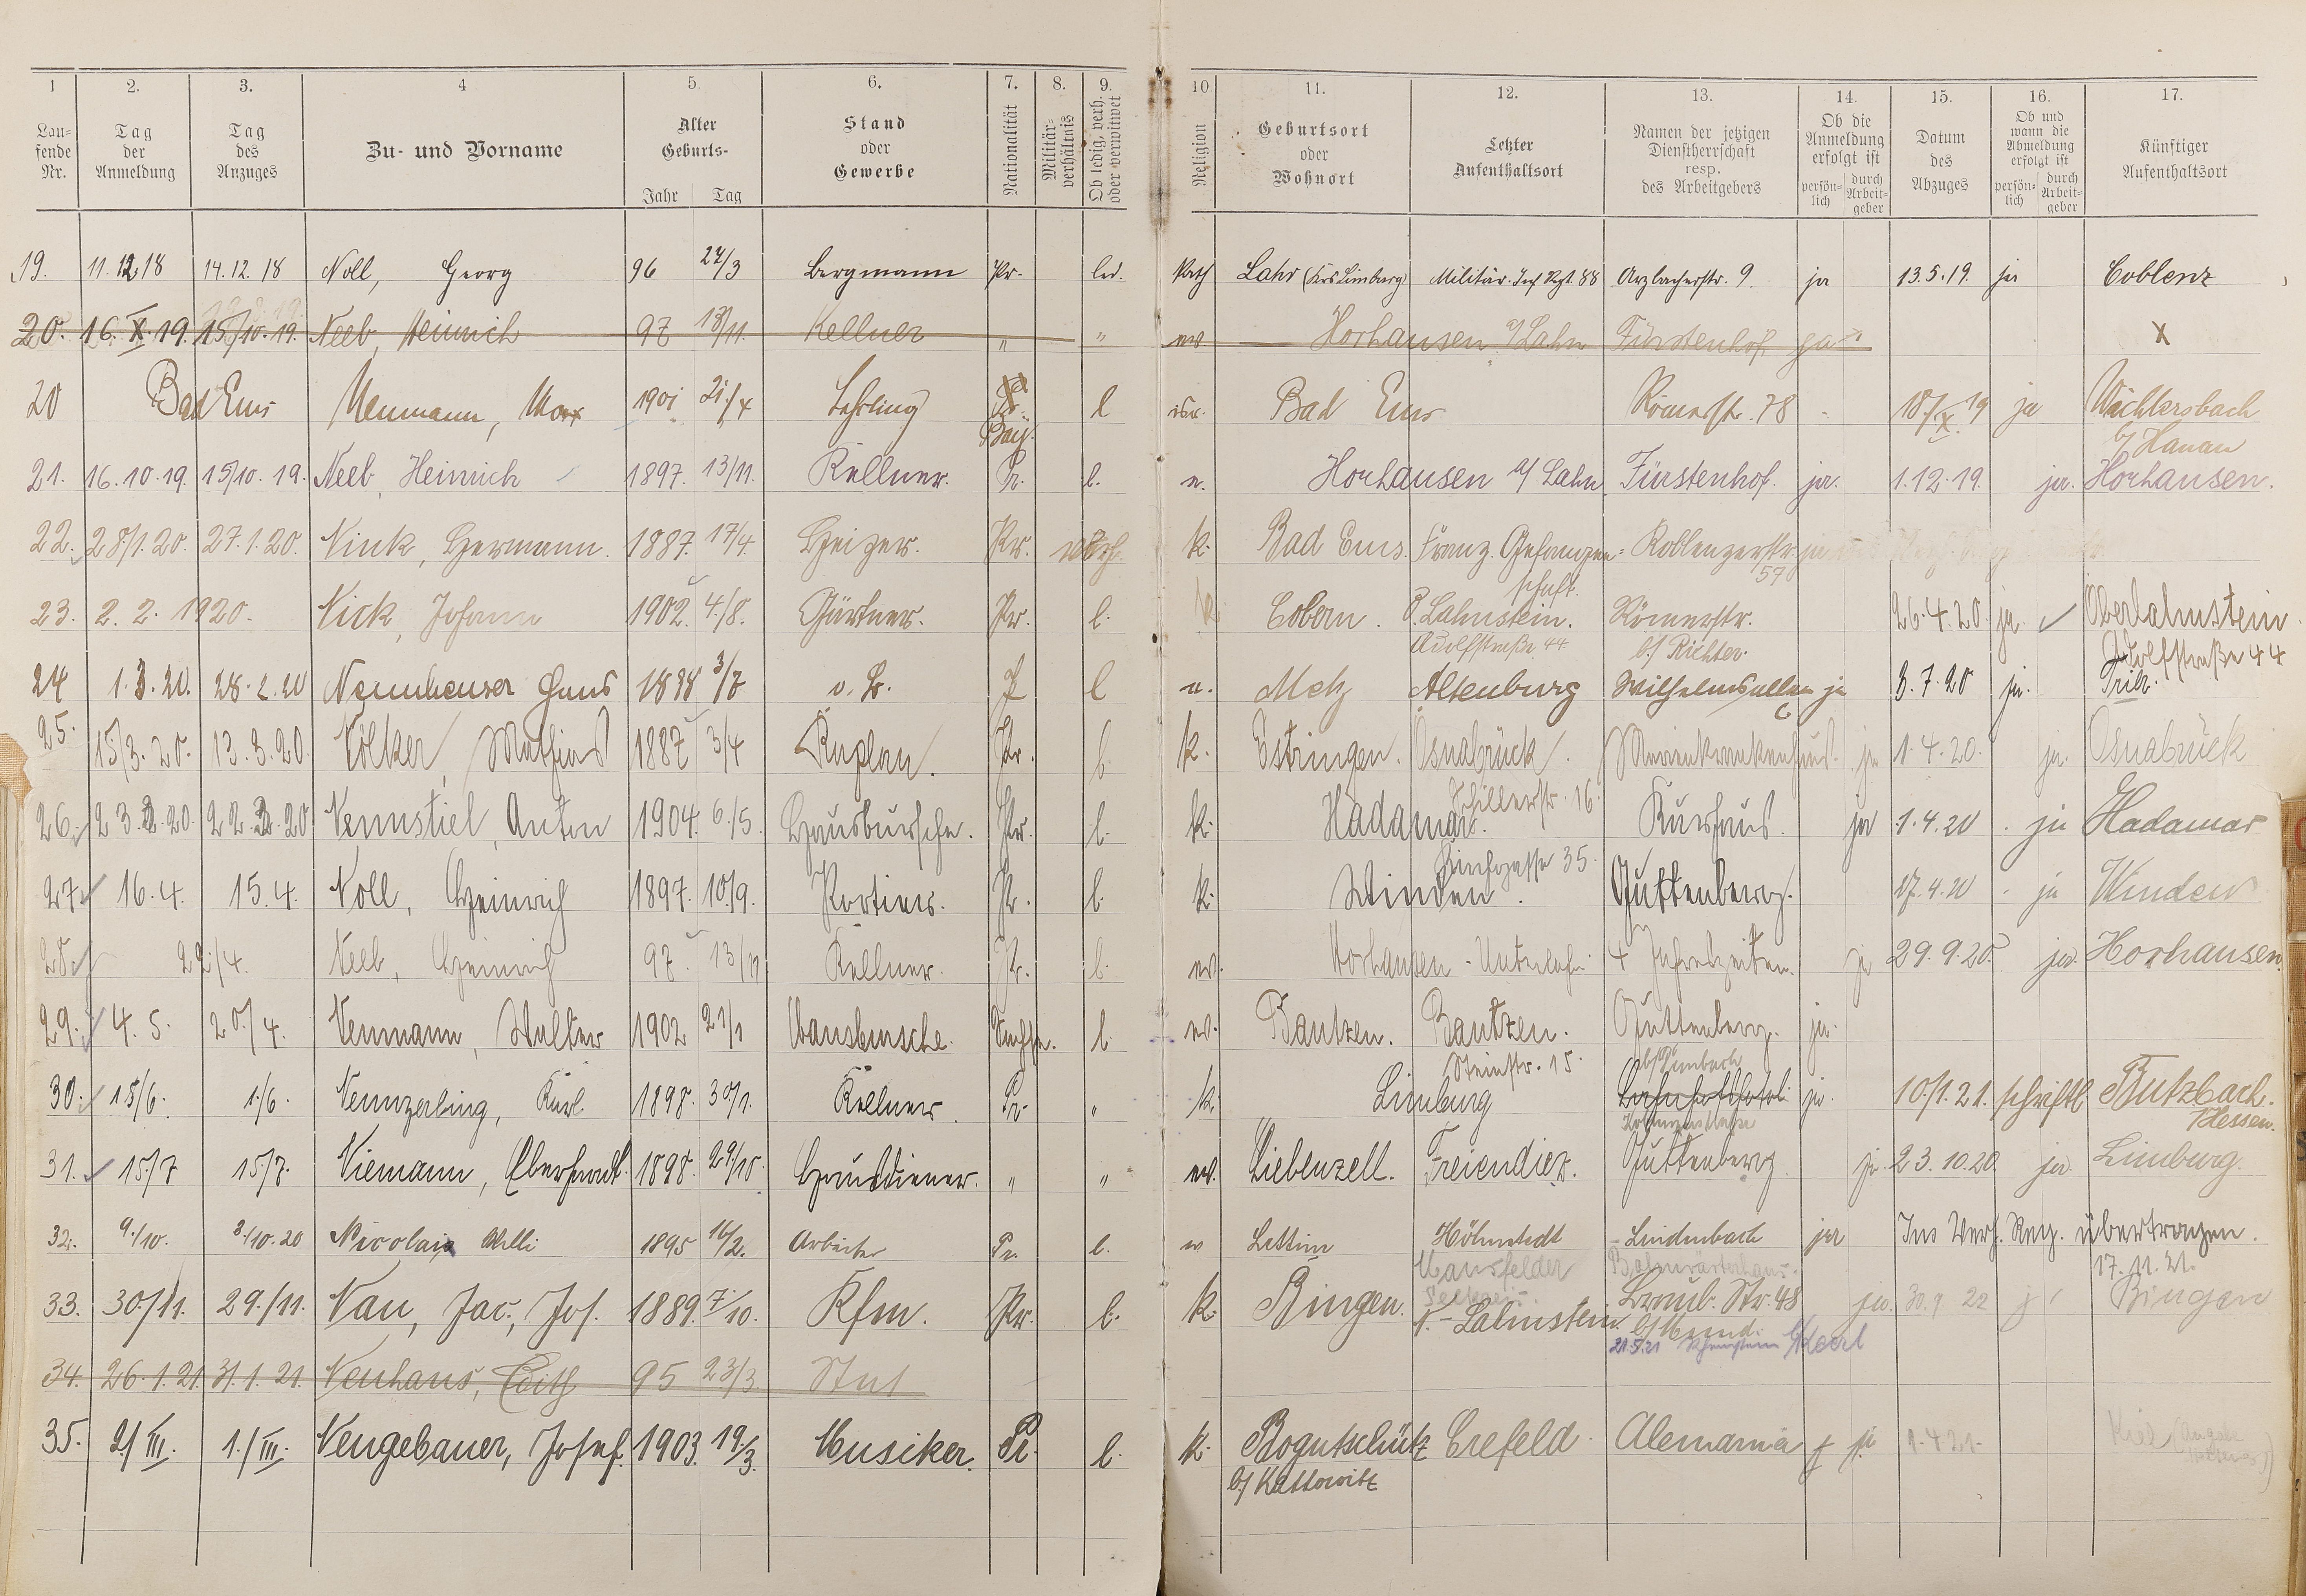 1 2. 3. 4 5. 6. 7. 8. 9. 10. 11. 12. 13. 14. 15. 16. 17.
Lau-
fende
Nr.
Tag
der
Anmeldung
Tag
des
Anzuges
Zu- und Vorname
Alter
Geburts-
Jahr Tag
Stand
oder
Gewerbe
Nationalität
Militär-
verhältnis
Ob ledig, verh.
oder verwitwet
Religion
Geburtsort
oder
Wohnort
Letzter
Aufenthaltsort
Namen der jetzigen
Dienstherrschaft
resp.
des Arbeitgebers
Ob die
Anmeldung
erfolgt ist
persön-
lich
durch
Arbeit-
geber
Datum
des
Abzuges
Ob und
wann die
Abmeldung
erfolgt ist
persön-
lich
durch
Arbeit-
geber
Künftiger
Aufenthaltsort
19. 11.12.18 14.12.18 Noll, Georg 96 24/3 Bergmann Pr. led. Kath Lahr (Krs Limburg) Militär. Inf. Rgt. 88 Arzbacherstr. 9 ja 13.5.19. ja Coblenz
20. 16.X.19. 15/10.19. Neeb, Heinrich 97 13/11. Kellner " " ev. Horhausen a/Lahn Fürstenhof ja X
20 Bad Ems Neumann, Max 1901 21/4 Lehrling Pr. l isr. Bad Ems Römerstr. 78 18/X.19 ja Wächtersbach
Bay. b/ Hanau
21. 16.10.19. 15/10.19. Neeb, Heinrich 1897. 13/11. Kellner. Pr. l. ev. Horhausen a/ Lahn Fürstenhof. ja. 1.12.19. ja. Horhausen.
22. 28/1.20. 27.1.20. Nink, Hermann. 1887. 17/4. Heizer. Pr. verh. k. Bad Ems. Franz. Gefangen= Koblenzerstr. ja
schaft. 57
23. 2.2.1920. Nick, Johann 1902. 4/8. Gärtner. Pr. l. k Cobern. O. Lahnstein. Römerstr. 26.4.20. ja Oberlahnstein.
Adolfstraße 44 b/ Richter. Adolfstraße 44
24 1.3.20. 28.2.20 Hans 1898 3/7 o. B. l Metz Altenburg Wilhelmsallee ja 3.7.20 ja. Trier.
25. 15/3.20. 13.3.20. Nölker, Mathias 1887 3/4 Kaplan. Pr. l. k. Estringen. Osnabrück. Marienkrankenhaus. ja 1.4.20. ja. Osnabrück
Schillerstr. 16.
26. 23.3.20. 22.3.20 Nennstiel, Anton 1904. 6/5. Hausbursche. Pr. l. k. Hadamar. Kurhaus. ja 1.4.20 ja Hadamar
35.
27. 16.4. 15.4. Noll, Heinrich 1897. 10/9. Portier. Pr. l. k. Winden. Guttenberg. 17.4.20 ja Winden
28. 22/4. Neeb, Heinrich 97. 13/11 Kellner. Pr. l. ev. Horhausen - Unterlahn. 4 Jahreszeiten. ja 29.9.20. ja. Horhausen.
29. 4.5. 20/4. Neumann, Walter 1902 21/1 Hausbursche. Sachse. l. ev. Bautzen. Bautzen. Guttenberg. ja.
Steinstr. 15.
30. 15/6. 1/6. Nennzerling, Karl 1898. 30/1. Kellner. Pr. " k. Limburg ja. 10/1.21. schriftl. Butzbach.
Hessen.
31. 15/7 15/7. Niemann, Eberhardt. 1898. 29/10. Hausdiener. " " ev. Liebenzell. Freiendiez. Guttenberg. ja. 23.10.20. ja. Limburg.
32. 9./10. 3/10.20 Nicolai Willi 1895 16/2. Arbeiter Pr. l. ev Lettin Lindenbach ja Ins Verh. Reg. übertragen.
Mansfelder 17.11.21.
33. 30./11. 29./11. Nau, Jac., Jos. 1889. 7/10. Kfm. Pr. l. k. Bingen. N.-Lahnstein. Bramb. Str. 48 ja. 30.9 22 Bingen
34. 26.1.21. 31.1.21. Neuhaus, Edith 95 23/3. Stud
35. 2/III. 1./III. Neugebauer, Josef. 1903. 19/3. Musiker. Pr. l. k. Bogutschütz Crefeld. Alemania ja 1.4.21. Kiel
b/ Kattowitz